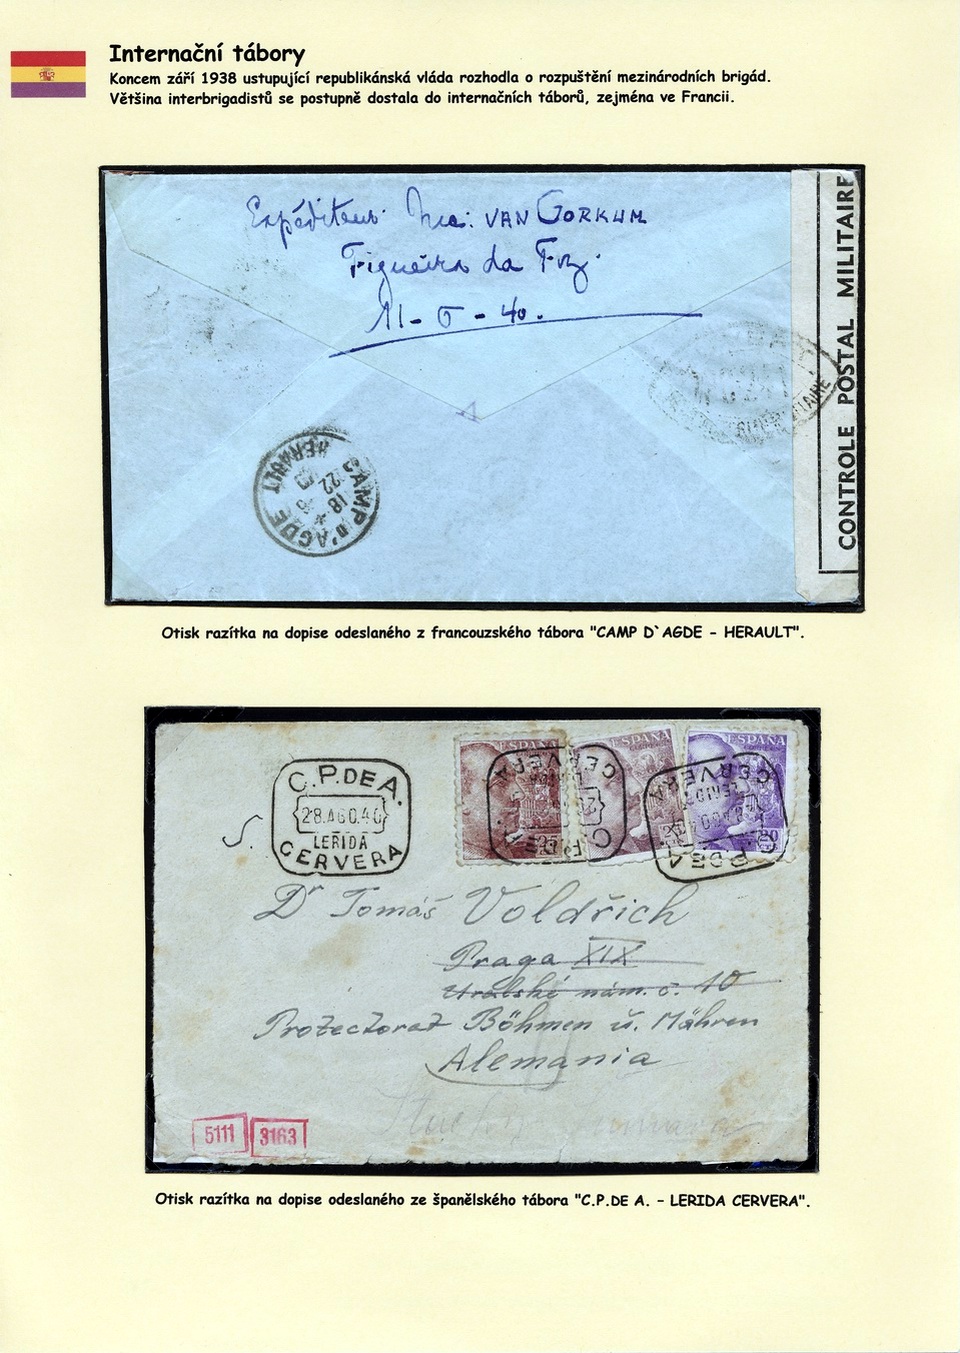 Internační tábory
Koncem září 1938 ustupující republikánská vláda rozhodla o rozpuštění mezinárodních brigád.
Většina interbrigadistů se postupně dostala do internačních táborů, zejména ve Francii.
Expéditeur: VAN GORKUM
Figueira da Foz.
11-6-40.
CONTROLE POSTAL MILITAIRE
CAMP D'AGDE
HERAULT
18
22
Otisk razítka na dopise odeslaného z francouzského tábora "CAMP D`AGDE - HERAULT".
C.P.DE A.
28.AGO.40
LERIDA
CERVERA
ESPAÑA
ESPAÑA
ESPAÑA
C.P.DE A.
LERIDA
CERVERA
20
Dr Tomáš Voldřich
Praga XIX
Uralské nám. č. 10
Protectorat Böhmen u. Mähren
Alemania
5111
3163
Otisk razítka na dopise odeslaného ze španělského tábora "C.P.DE A. - LERIDA CERVERA".